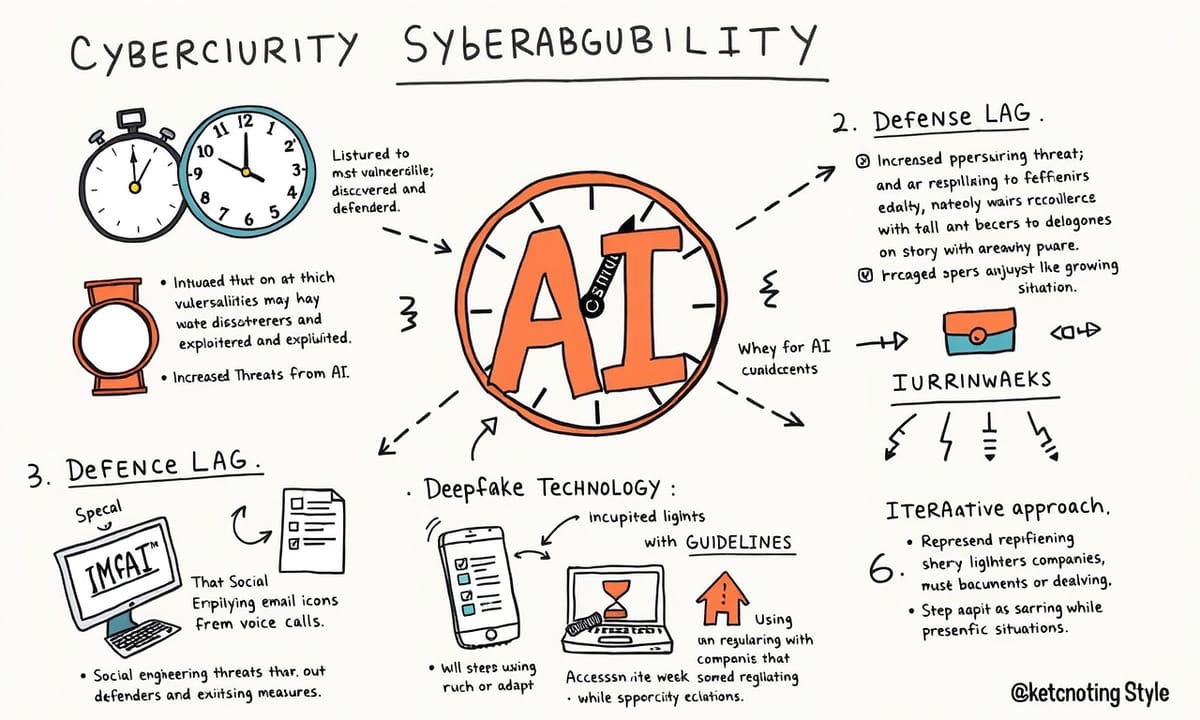 CYBERCIURITY SYBERABGUBILITY
12
1
2
3
4
5
6
7
8
9
10
11
Listured to
mst valnecrelile;
discevered and
defenderd.
• Intuaed that on at thich
vulersalities may hay
wate dissoterers and
exploitered and expluited.
• Increased Threats from AI.
AI
2. Defense LAG.
Increased ppersuiring threat;
and ar respilking to feffienirs
edalty, nateoly wairs rccoillerce
with tall ant becers to delogones
on story with areawhy puare.
Frcaged spers anjuyst like growing
Sitnation.
Whey for AI
cunldccents
IURRINWAEKS
3. DeFENCE LAG.
Specal
IMFAI™
That Social
Erpilying email icons
From voice calls.
• Social engheering threats thar. out
defenders and exitsing measures.
. Deepfake TECHNOLOGY :
incupited ligints
with GUIDELINES
• Will steps using
ruch or adapt
Using
un regularing with
companis that
Accessn ite week somed regliating
• while spporcity eclations.
ITERAative approach.
6.
• Represend repifiening
shery liglhters companies,
must bacuments or dealving.
• Step aapit as sarring while
presenfic situations.
@ketcnoting Style